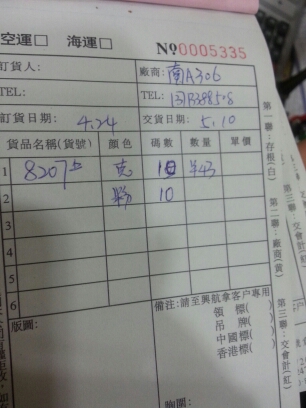 空運□ 海運□ No 0005335
訂貨人: 廠商: 南A306
TEL: TEL:
訂貨日期: 4.24 交貨日期: 5.10
貨品名稱(貨號) 顏色 碼數 數量 單價
1 8207
2 10
3
4
5
6
版圖: 備注:請至興航拿客戶專用
領標( )
吊牌( )
中國標( )
香港標( )
胸圍:
第一聯:存根(白)
第二聯:廠商(黃)
第三聯:交會計(紅)